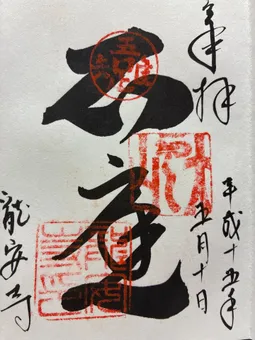 奉拝
平成十五年
五月十日
石庭
龍安寺